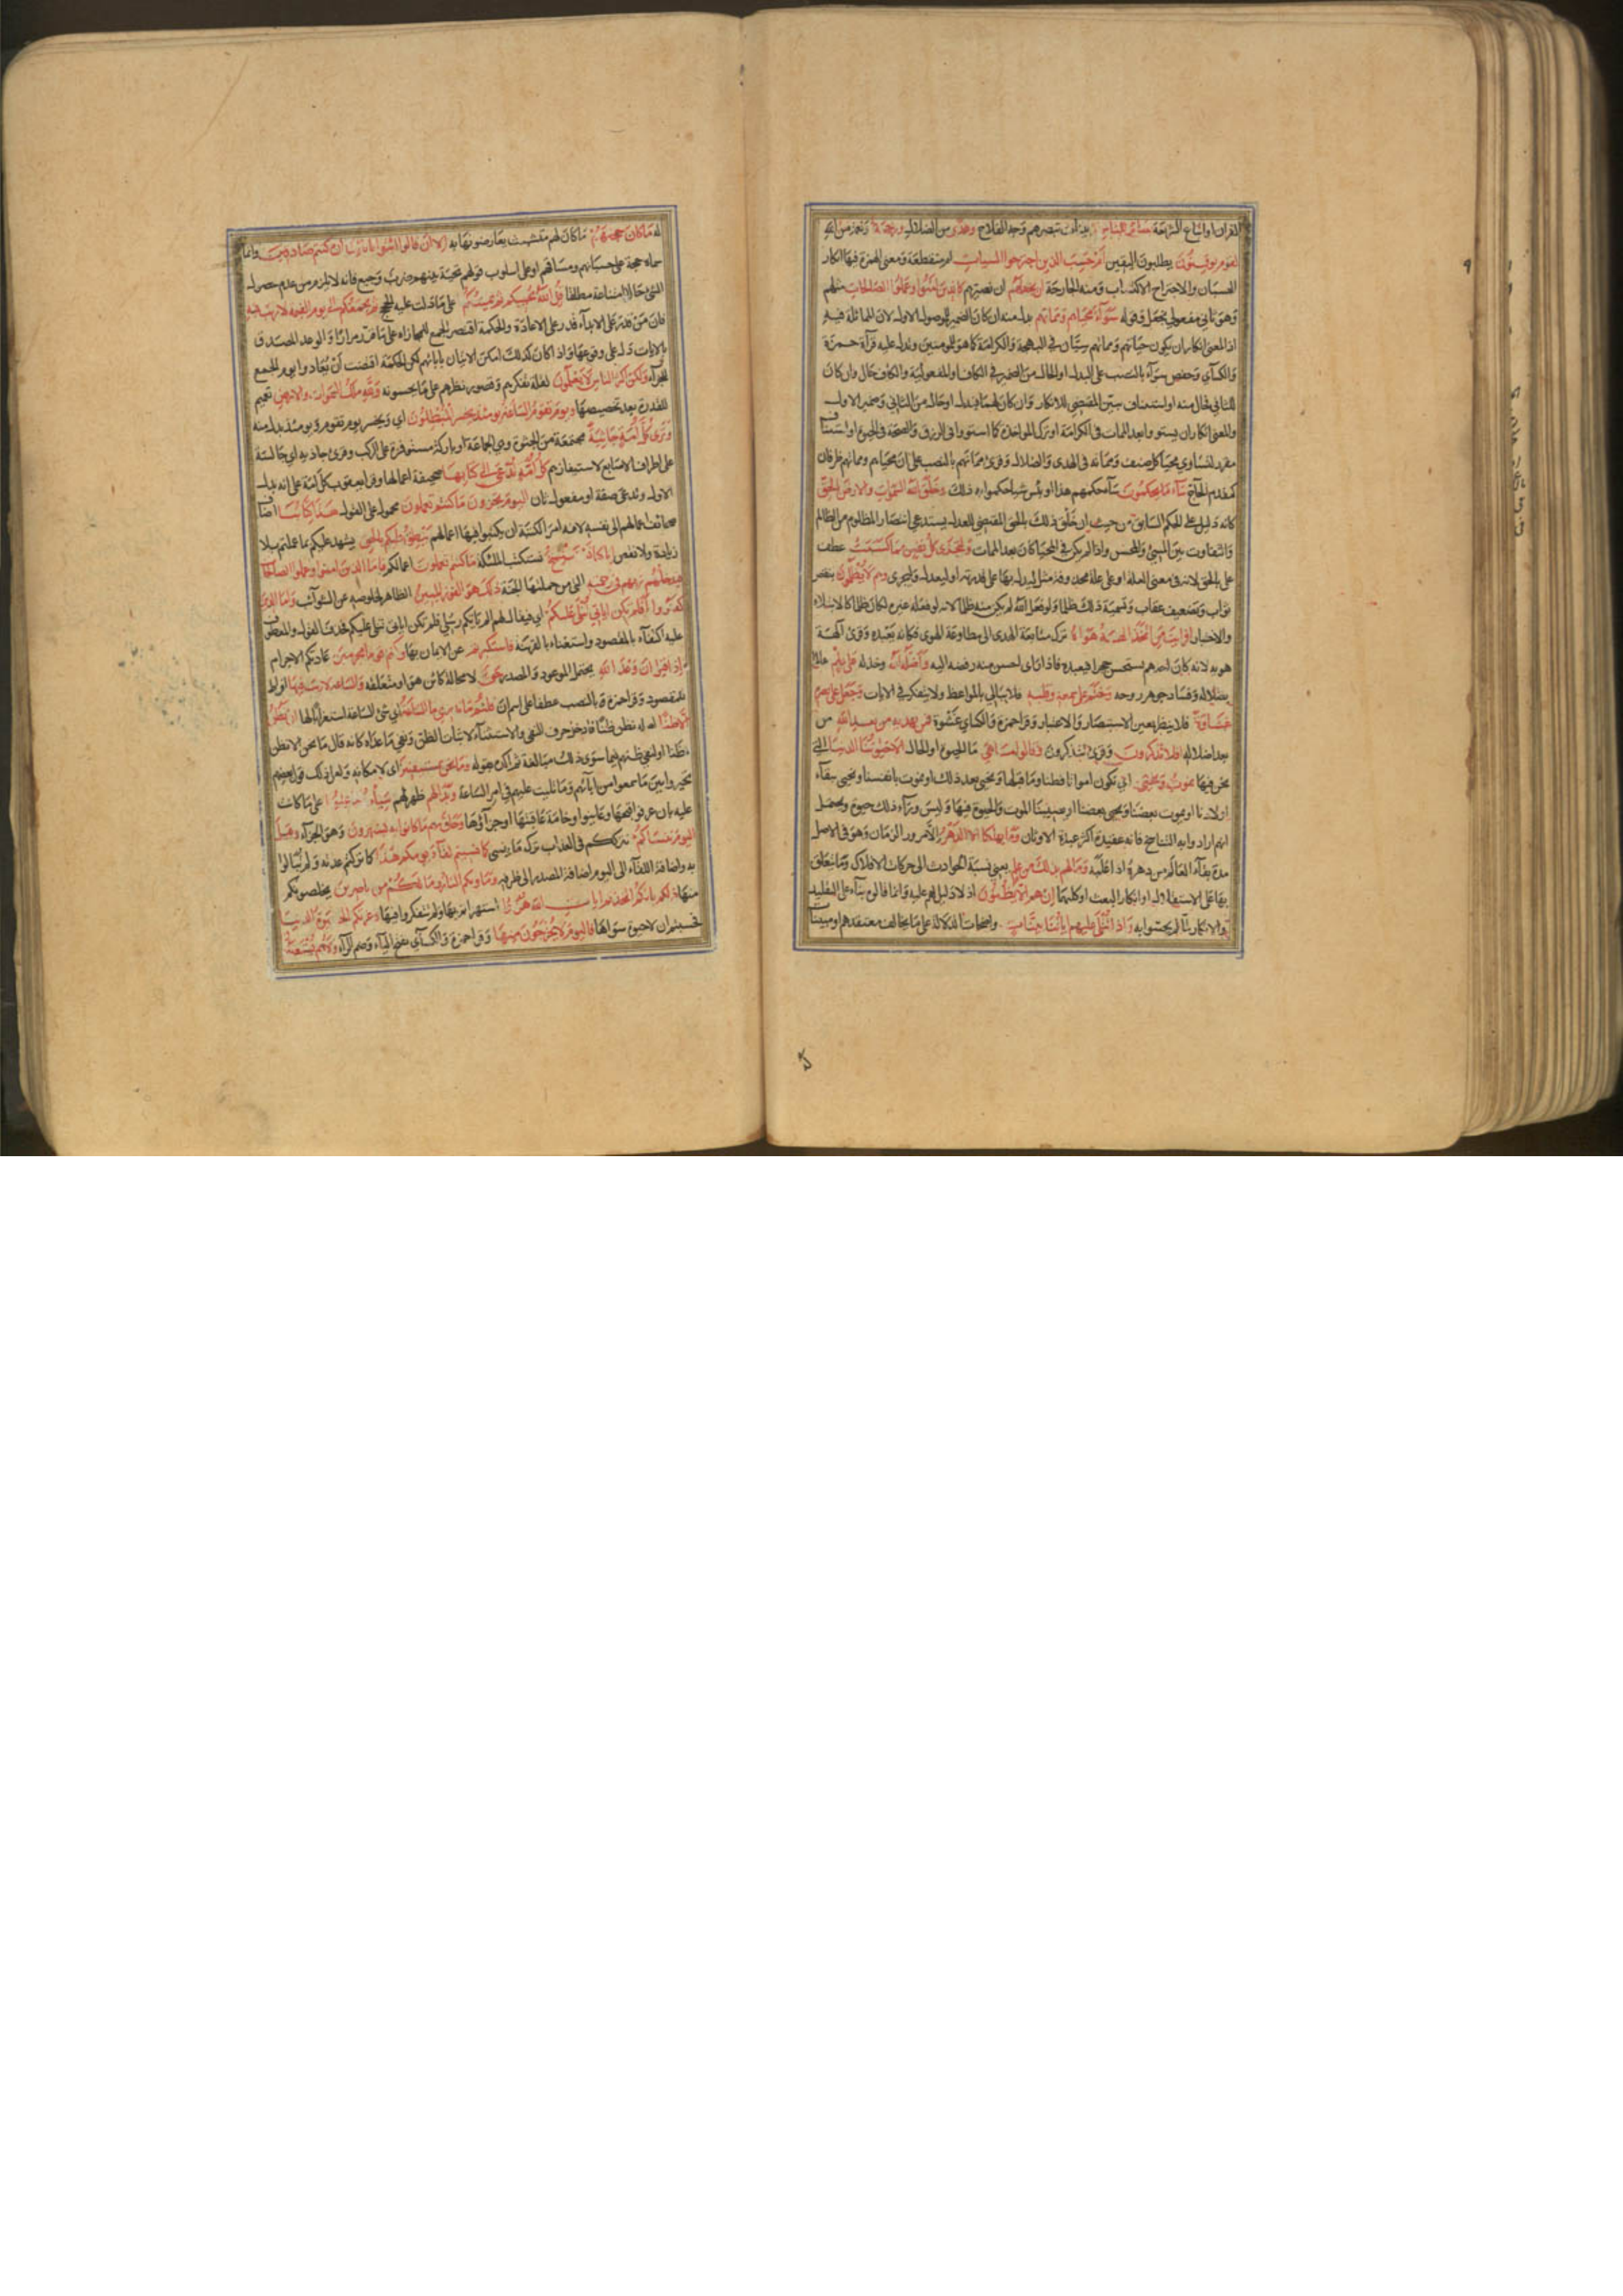 القران او اتباع الشريعة بصائر للناس بينات تبصرهم وجه الفلاح وهدى من الضلال ورحمة ونعمة من الله
لقوم يوقنون يطلبون اليقين ام حسب الذين اجترحوا السيئات ام منقطعة ومعنى الهمزة فيها انكار
الحسبان والاجتراح الاكتساب ومنه الجارحة ان نجعلهم ان نصيرهم كالذين امنوا وعملوا الصالحات مثلهم
وهو ثاني مفعولي نجعل وقوله سوآء محياهم ومماتهم بدل منه ان كان الضمير للموصول الاول لان المماثلة فيه
اذ المعنى انكار ان يكون حياتهم ومماتهم سيان في البهجة والكرامة كما هو للمومنين ويدل عليه قرآة حمزة
والكسآي وحفص سوآء بالنصب على البدل او الحال من الضمير في الكاف او المفعولية والكاف حال وان كان
للثاني فحال منه او استيناف يبين المقتضي للانكار وان كان لهما فبدل او حال من الثاني وضمير الاول
والمعنى انكار ان يستووا بعد الممات في الكرامة او ترك المواخذة كما استووا في الرزق والصحة في الحيوة او استيناف
مقرر لتساوي محيا كل صنف ومماته في الهدى والضلال وقرئ مماتهم بالنصب على ان محياهم ومماتهم ظرفان
كمقدم الحاج سآء ما يحكمون سآء حكمهم هذا او بئس شيا حكموا به ذلك وخلق الله السموات والارض بالحق
كانه دليل على الحكم السابق من حيث ان خلق ذلك بالحق المقتضي للعدل يستدعي انتصار المظلوم من الظالم
والتفاوت بين المسئ والمحسن واذا لم يكن في المحيا كان بعد الممات ولتجزى كل نفس ما كسبت عطف
على بالحق لانه في معنى العلة او على علة محذوفة مثل ليدل بها على قدرته او ليعدل ولتجزى وهم لا يظلمون بنقص
ثواب وتضعيف عقاب وتسمية ذلك ظلما ولو فعله الله لم يكن منه ظلما لانه لو فعله غيره لكان ظلما كالابتلاء
والاختبار افرايت من اتخذ الهه هواه ترك متابعة الهدى الى مطاوعة الهوى فكانه يعبده وقرئ آلهة
هويه لانه كان احدهم يستحسن حجرا فيعبده فاذا راى احسن منه رفضه اليه واضله الله وخذله على علم عالما
بضلاله وفساد جوهر روحه وختم على سمعه وقلبه فلا يبالي بالمواعظ ولا يتفكر في الايات وجعل على بصره
غشاوة فلا ينظر بعين الاستبصار والاعتبار وقرا حمزة والكسآي غشوة فمن يهديه من بعد الله من
بعد اضلاله افلا تذكرون وقرئ تتذكرون وقالوا ما هي ما الحيوة او الحال الا حيوتنا الدنيا التي
نحن فيها نموت ونحيى اي نكون امواتا نطفا وما قبلها ونحيى بعد ذلك او نموت بانفسنا ونحيى ببقآء
اولادنا او يموت بعضنا ويحيى بعضنا او يصيبنا الموت والحيوة فيها وليس ورآء ذلك حيوة ويحتمل
انهم ارادوا به التناسخ فانه عقيدة اكثر عبدة الاوثان وما يهلكنا الا الدهر الا مرور الزمان وهو في الاصل
مدة بقآء العالم من دهره اذا غلبه وما لهم بذلك من علم يعني نسبة الحوادث الى حركات الافلاك وما يتعلق
بها على الاستقلال او انكار البعث او كليهما ان هم الا يظنون اذ لا دليل لهم عليه وانما قالوه بناء على التقليد
والانكار بما لم يحسوا به واذا تتلى عليهم اياتنا بينات واضحات الدلالة على ما يخالف معتقدهم او مبينات
له ما كان حجتهم ما كان لهم متشبث يعارضونها به الا ان قالوا ائتوا باباينا ان كنتم صادقين وانما
سماه حجة على حسبانهم ومساقهم او على اسلوب قولهم تحية بينهم ضرب وجيع فانه لا يلزم من عدم حصول
الشئ حالا امتناعه مطلقا قل الله يحييكم ثم يميتكم على ما دلت عليه الحجج ثم يجمعكم الى يوم القيمة لا ريب فيه
فان من قدر على الابدآء قدر على الاعادة والحكمة اقتضت الجمع للمجازاة على ما قرر مرارا والوعد المصدق
بالايات دل على وقوعها واذا كان كذلك امكن الاتيان بابائهم لكن الحكمة اقتضت ان يعادوا يوم الجمع
للجزآء ولكن اكثر الناس لا يعلمون لقلة تفكرهم وقصور نظرهم على ما يحسونه ولله ملك السموات والارض تعميم
للقدرة بعد تخصيصها ويوم تقوم الساعة يومئذ يخسر المبطلون اي ويخسر يوم تقوم ويومئذ بدل منه
وترى كل امة جاثية مجتمعة من الجثوة وهي الجماعة او باركة مستوفزة على الركب وقرئ جاذية اي جالسة
على اطراف الاصابع لاستيفازهم كل امة تدعى الى كتابها صحيفة اعمالها وقرا يعقوب كل امة على انه بدل
الاول وتدعى صفة او مفعول ثان اليوم تجزون ما كنتم تعملون محمول على القول هذا كتابنا اضاف
صحائف اعمالهم الى نفسه لانه امر الكتبة ان يكتبوا فيها اعمالهم ينطق عليكم بالحق يشهد عليكم بما عملتم بلا
زيادة ولا نقص انا كنا نستنسخ نستكتب الملئكة ما كنتم تعملون اعمالكم فاما الذين امنوا وعملوا الصالحات
فيدخلهم ربهم في رحمته التي من جملتها الجنة ذلك هو الفوز المبين الظاهر لخلوصه عن الشوآئب واما الذين
كفروا افلم تكن اياتي تتلى عليكم اي فيقال لهم الم ياتكم رسلي فلم تكن اياتي تتلى عليكم فحذف القول والمعطوف
عليه اكتفآء بالمقصود واستغناء بالقرينة فاستكبرتم عن الايمان بها وكنتم قوما مجرمين عادتكم الاجرام
واذا قيل ان وعد الله يحتمل الموعود والمصدر حق لا محالة كائن هو او متعلقه والساعة لا ريب فيها افراط
للمقصود وقرا حمزة بالنصب عطفا على اسم ان قلتم ما ندري ما الساعة اي شئ الساعة استغرابا لها ان نظن
الا ظنا اصله نظن ظنا فادخل حرف النفي والاستثنآء لاثبات الظن ونفي ما عداه كانه قال ما نحن الا نظن
ظنا او لنفي ظنهم فيما سوى ذلك مبالغة ثم اكده بقوله وما نحن بمستيقنين اي لامكانه ولعل ذلك قول بعضهم
تحيروا بين ما سمعوا من ابآئهم وما تليت عليهم في امر الساعة وبدا لهم ظهر لهم سيئات ما عملوا على ما كانت
عليه بان عرفوا قبحها وعاينوا وخامة عاقبتها او جزآؤها وحاق بهم ما كانوا به يستهزؤن وهو الجزآء وقيل
اليوم ننساكم نترككم في العذاب ترك ما ينسى كما نسيتم لقآء يومكم هذا كما تركتم عدته ولم تبالوا
به واضافة اللقآء الى اليوم اضافة المصدر الى ظرفه وماويكم النار وما لكم من ناصرين يخلصونكم
منها ذلكم بانكم اتخذتم ايات الله هزؤا استهزاتم بها ولم تتفكروا فيها وغرتكم الحيوة الدنيا
فحسبتم ان لا حيوة سواها فاليوم لا يخرجون منها وقرا حمزة والكسآي بفتح اليآء وضم الرآء ولا هم يستعتبون